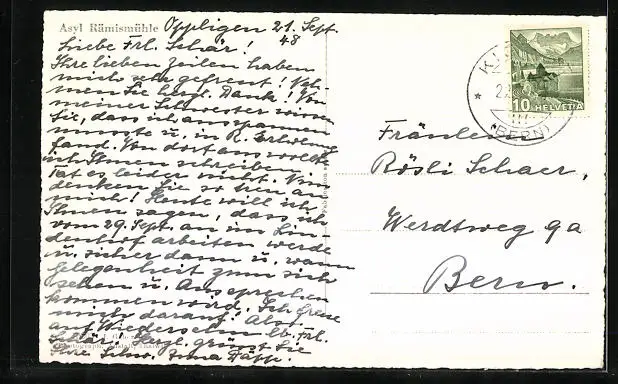 Asyl Rämismühle Oppligen 21. Sept.
48
Liebe Frl. Schär!
Ihre lieben Zeilen haben
mich sehr gefreut! Neh-
men Sie herzl. Dank! Von
meiner Schwester wissen
Sie, dass ich ausspannen
musste u. in R. Erholung
fand. Von dort aus wollte
ich Ihnen schreiben.
Tat es leider nicht. Nun
denken Sie so treu an
mich! Heute will ich
Ihnen sagen, dass ich
vom 29. Sept. an im Lin-
denhof arbeiten werde
u. sicher dann u. wann
Gelegenheit zum sich
sehen u. Aussprechen
kommen wird. Ich freue
mich darauf! Also
auf Wiedersehn lb. Frl.
Schär! Herzl. grüsst Sie
Ihre Schw.
Fräulein
Rösli Schaer,
Werdtweg 9a
Bern.
(BERN)
10 HELVETIA